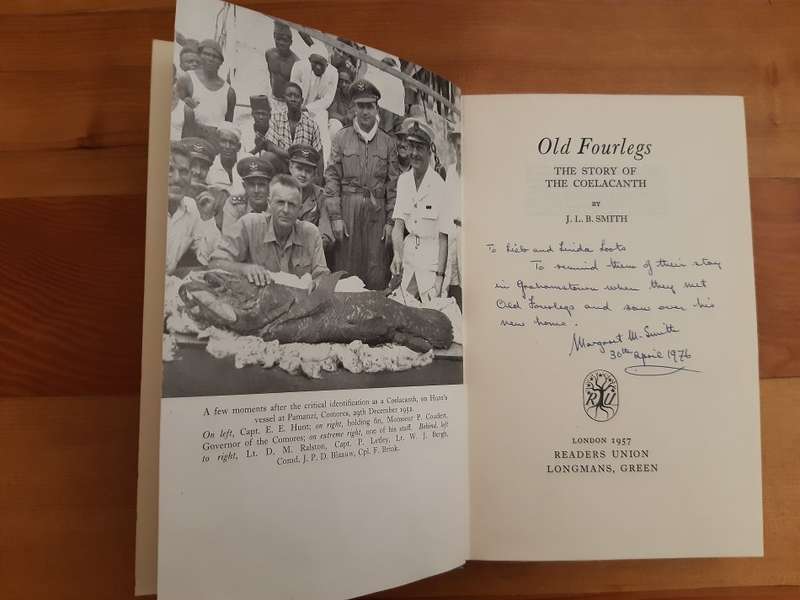 A few moments after the critical identification as a Coelacanth, on Hunt's
vessel at Pamanzi, Comores, 29th December 1952.
On left, Capt. E. E. Hunt; on right, holding fin, Monsieur P. Coudert,
Governor of the Comores; on extreme right, one of his staff. Behind, left
to right, Lt. D. M. Ralston, Capt. P. Letley, Lt. W. J. Bergh,
Comd. J. P. D. Blaauw, Cpl. F. Brink.
Old Fourlegs
THE STORY OF
THE COELACANTH
BY
J. L. B. SMITH
To Lieb and Linda Loots
To remind them of their stay
in Grahamstown when they met
Old Fourlegs and saw over his
new home.
Margaret M. Smith
30th April 1976
R U
LONDON 1957
READERS UNION
LONGMANS, GREEN